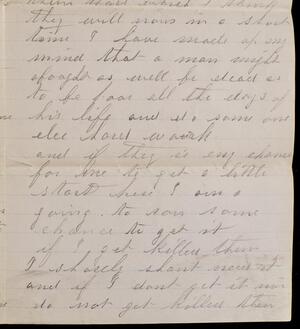 they will now in a short
time I have made up my
mind that a man might
about as well be dead as
to be poor all the days of
his life and do some one
else hard work
and if they is eny chance
for me to get a little
start here I am a
going to run some
chance to get it
if I get killed then
I shorely shant need it
and if I dont get it and
do not get killed then